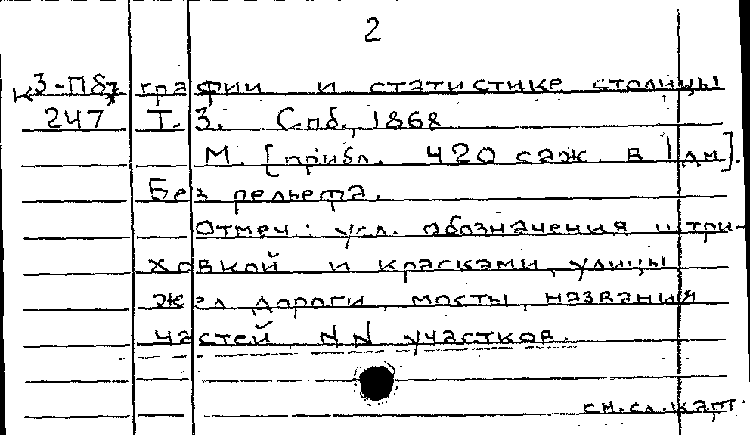 2
К 3-Пбг графии и статистике столицы
247 Т. 3. Спб., 1868
М. [прибл. 420 саж. в 1 дм].
Без рельефа.
Отмеч: усл. обозначения штри-
ховкой и красками, улицы
жел дороги, мосты, названия
частей, NN участков.
см. сл. карт.